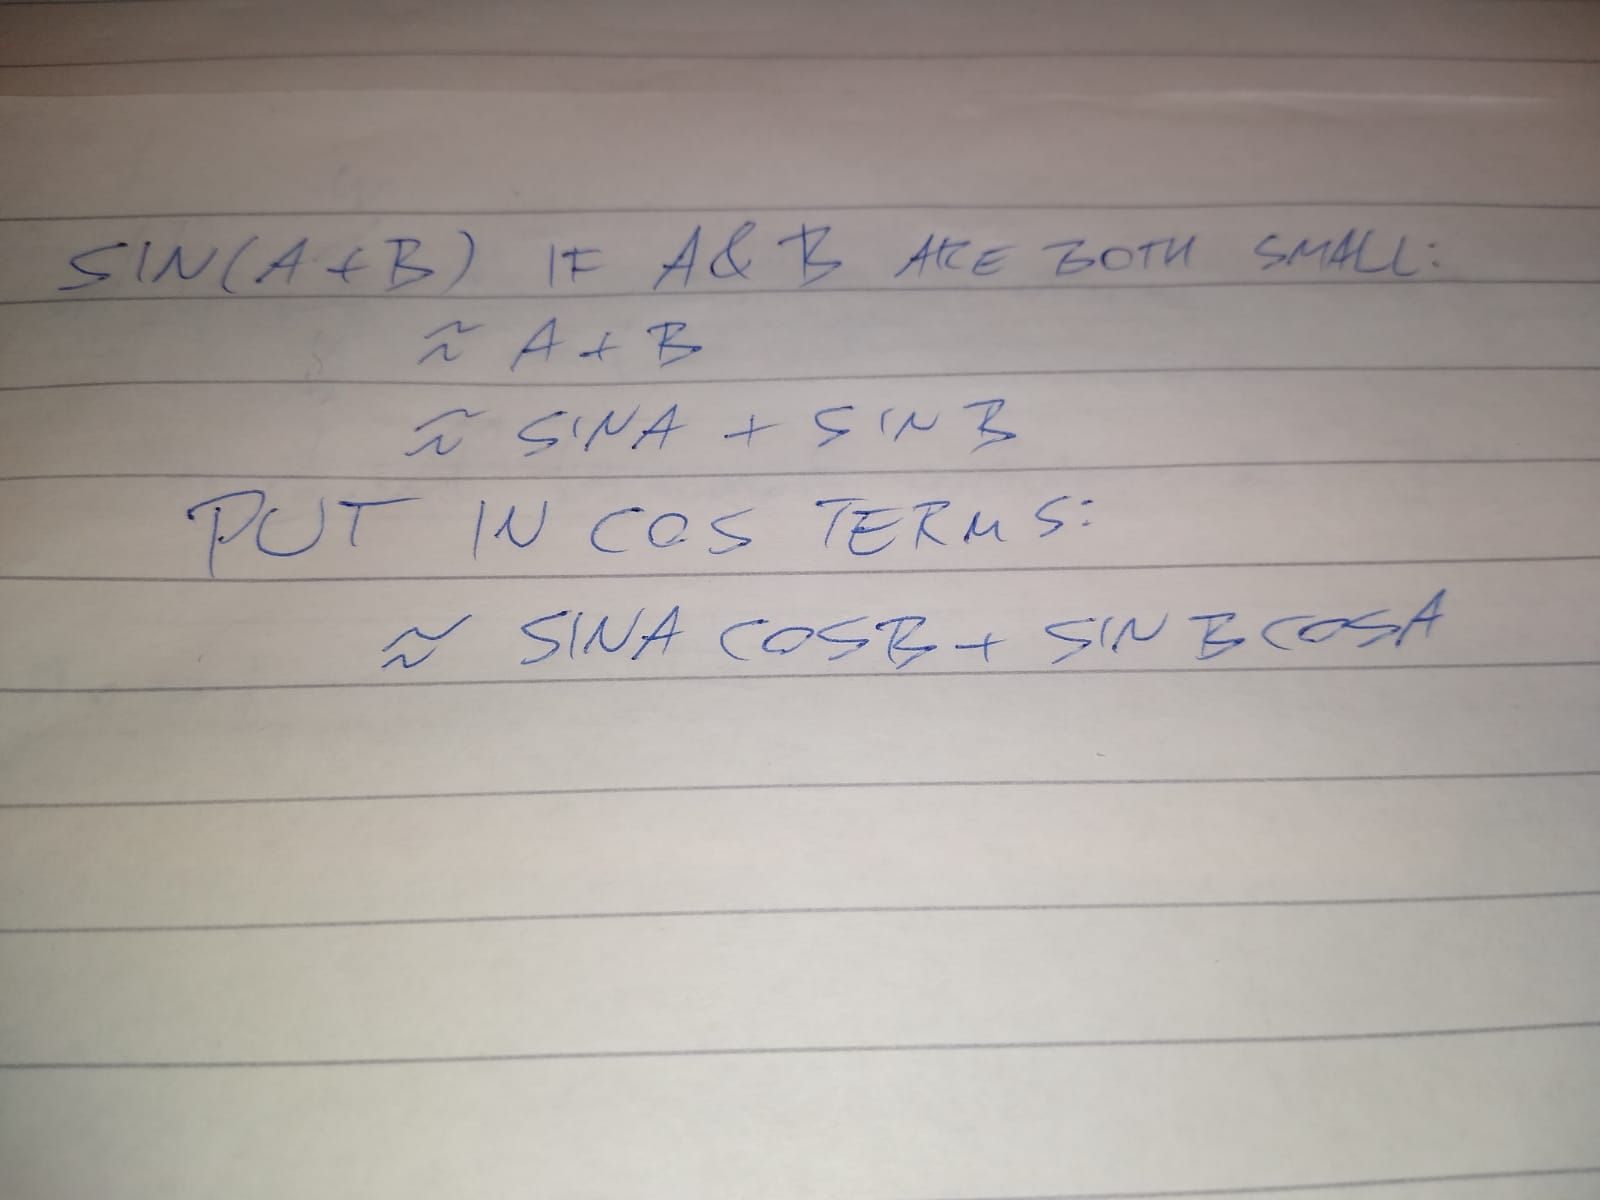 SIN(A+B) IF A & B ARE BOTH SMALL:
≈ A + B
≈ SINA + SIN B
PUT IN COS TERMS:
≈ SINA COSB + SIN B COSA